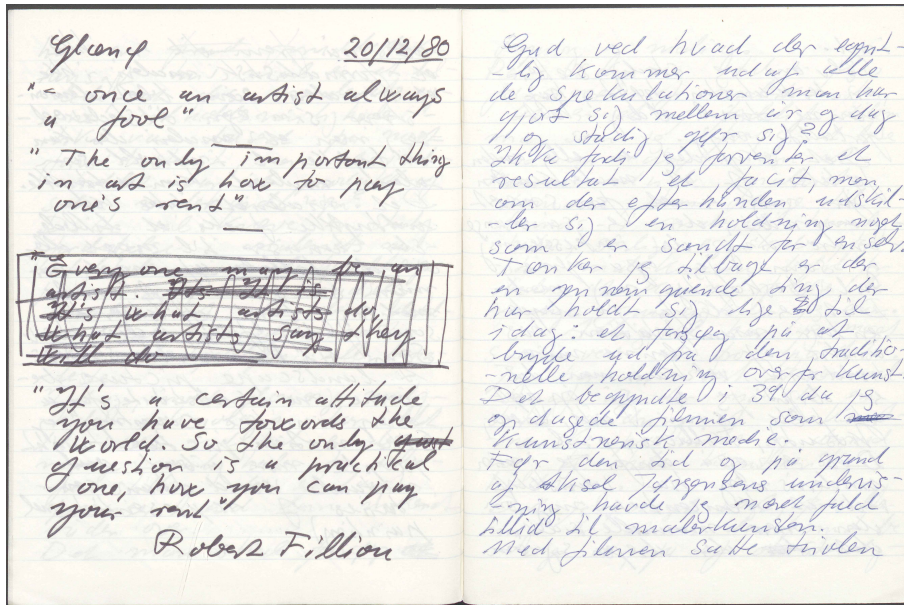 Glanç 20/12/80
"- once an artist always
a fool"
"The only important thing
in art is how to pay
one's rent"
"Everyone may be an
artist. Its It is
It's what artists do,
what artists say they
will do
"It's a certain attitude
you have towards the
world. So the only quest
question is a practical
one, how you can pay
your rent"
Robert Fillion
Gud ved hvad der egent-
-lig kommer ud af alle
de spekulationer man har
gjort sig mellem år og dag
og stadig gør sig?
Ikke fordi jeg forventer et
resultat et facit men
om der efterhånden udskil-
-ler sig en holdning noget
som er sandt for en selv.
Tænker jeg tilbage er der
en gennemgående ting der
har holdt sig lige til
idag: et forsøg på at
bryde ud fra den traditio-
-nelle holdning overfor kunst.
Det begyndte i 39 da jeg
opdagede filmen som
kunstnerisk medie.
Før den tid og på grund
af Aksel Jørgensens undervis-
-ning havde jeg næret fuld
tillid til malerkunsten.
Med filmen satte tvivlen